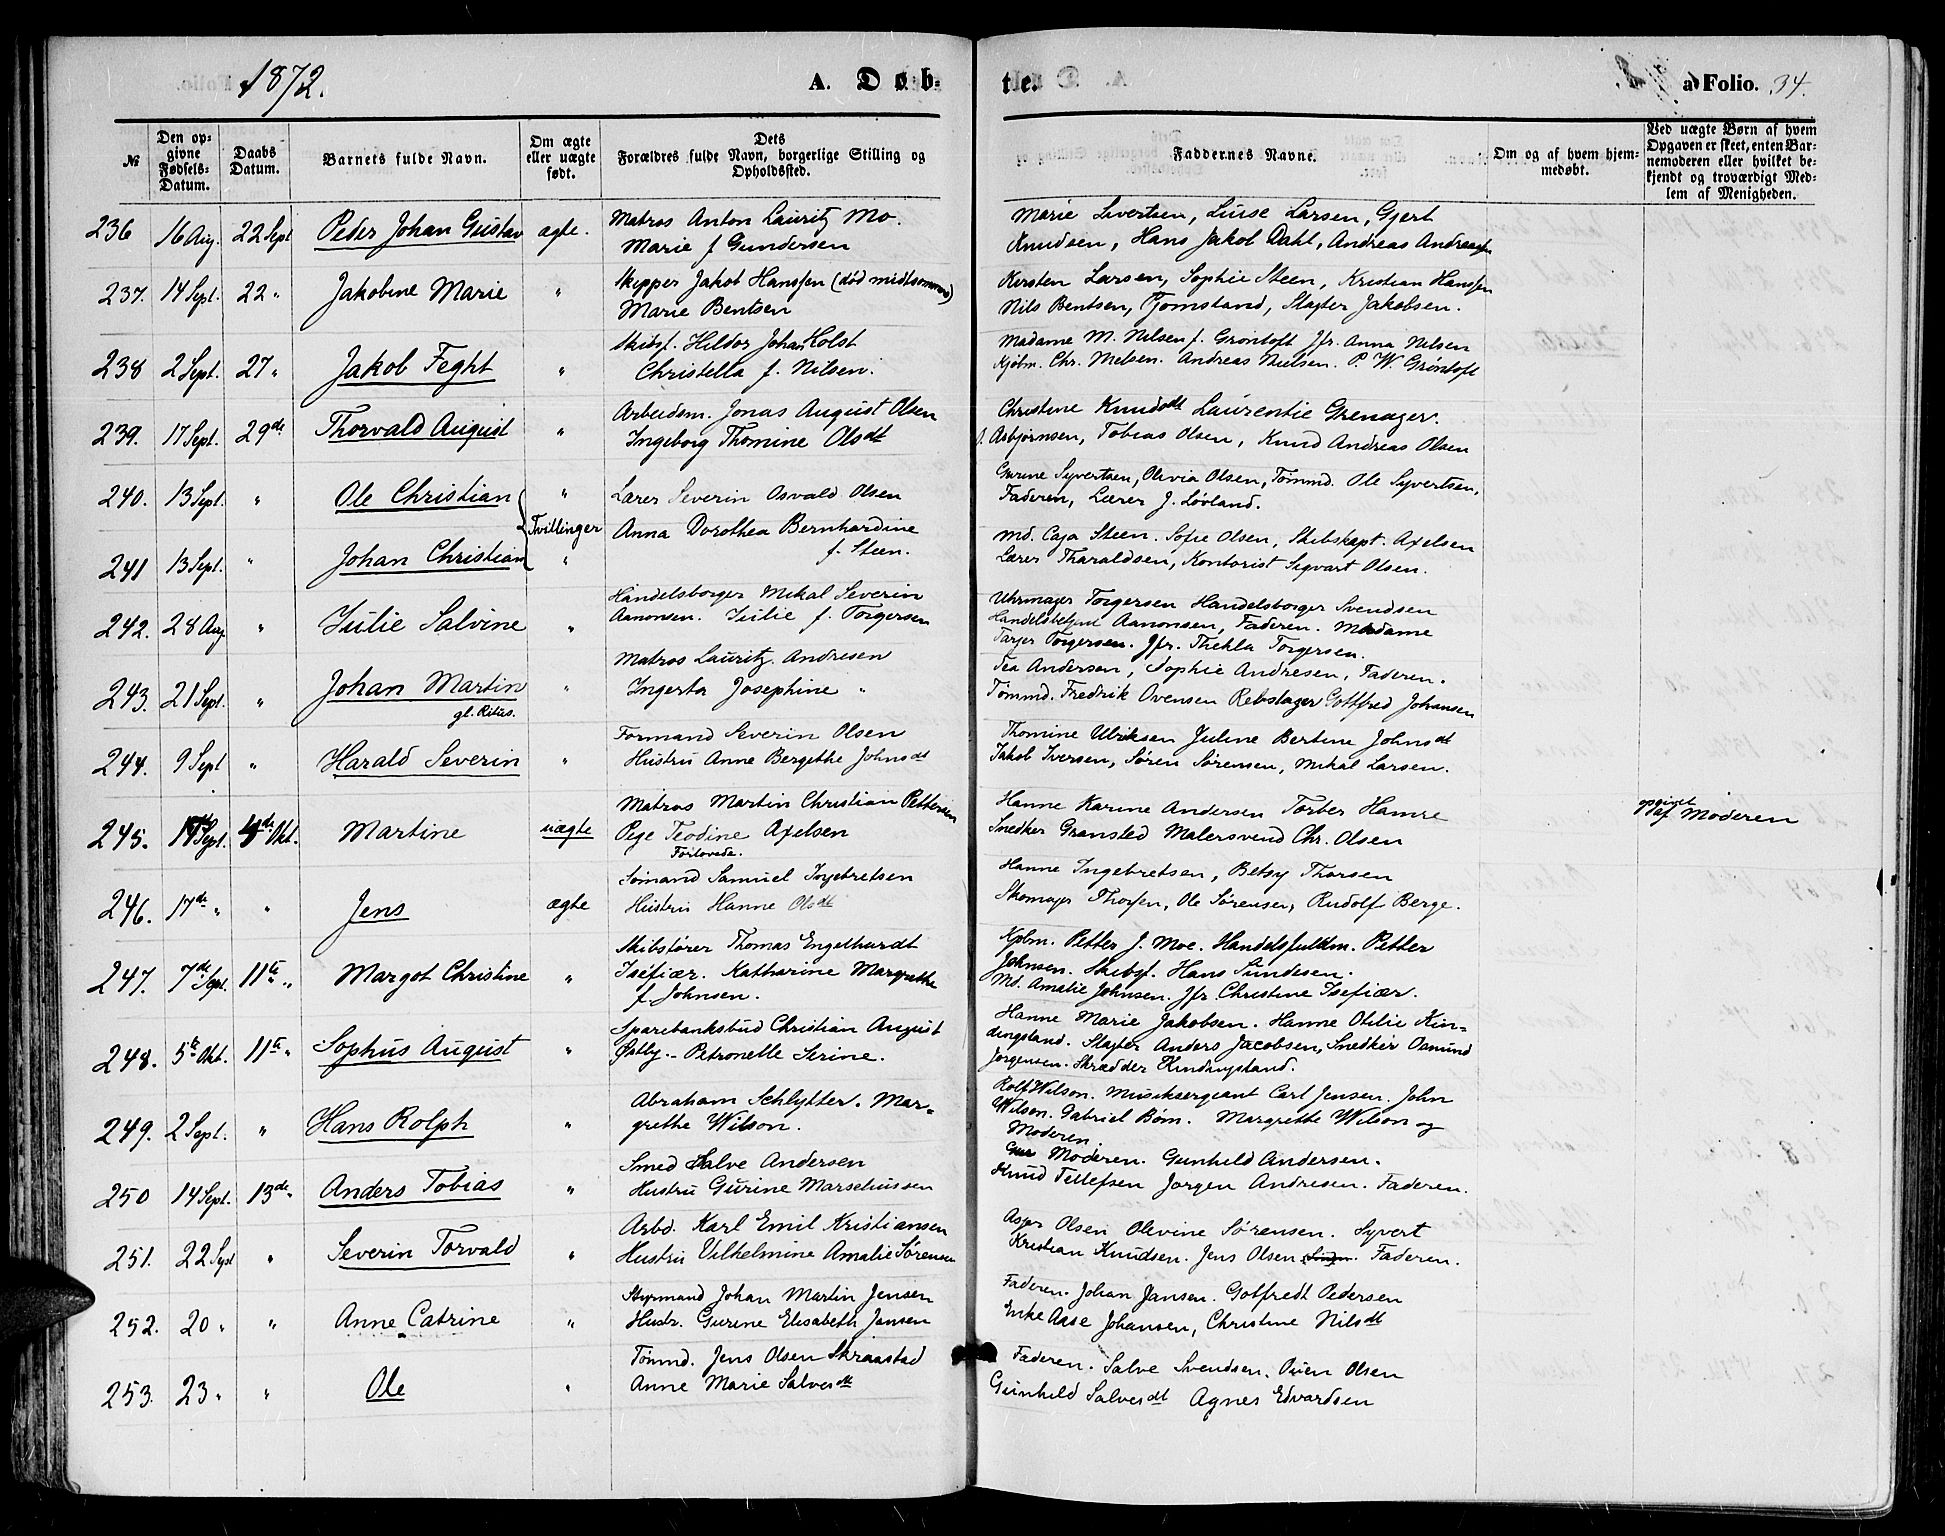 1872.
A. Døb-
te.
a Folio. 34.
№
Den op-
givne
Fødsels-
Datum.
Daabs
Datum.
Barnets fulde Navn.
Om ægte
eller uægte
født.
Dets
Forældres fulde Navn, borgerlige Stilling og
Opholdssted.
Faddernes Navne.
Om og af hvem hjem-
medøbt.
Ved uægte Børn af hvem
Opgaven er skeet, enten Bar-
nemoderen eller hvilket be-
kjendt og troværdigt Med-
lem af Menigheden.
236 16 Aug. 22 Sept Peder Johan Gustav ægte.
Matros Anton Lauritz Mo.
Marie f Gundersen
Marie Sivertsen, Luise Larsen, Gjert
Knudsen, Hans Jakob Dahl, Andreas Andreassen
237. 14 Sept. 22 " Jakobine Marie "
Skipper Jakob Hanssen (død midtsommer)
Marie Bentsen
Kirsten Larsen, Sophie Steen, Kristian Hanssen
Nils Bentsen, Tjomsland, Slagter Jakobsen.
238 2 Sept. 27 " Jakob Feght "
Skibsf. Hildor Johan Holst
Christella f. Nilsen.
Madame M. Nilsen f. Grøntoft Jfr. Anna Nilsen
Kjøbm. Chr. Nielsen. Andreas Nielsen. P. W. Grøntoft
239. 17 Sept. 29de Thorvald August "
Arbeidsm. Jonas August Olsen
Ingeborg Thomine Olsdt
Christine Knudsdt Laurentie Grenager.
J. Asbjørnsen, Tobias Olsen, Knud Andreas Olsen
240. 13 Sept. " Ole Christian "
Tvillinger
Lærer Severin Osvald Olsen
Anna Dorothea Bernhardine
f. Steen.
Gurine Syvertsen, Olivia Olsen, Tømmd. Ole Syvertsen,
Faderen, Lærer J. Løvland.
241 13 Sept. " Johan Christian "
Md. Caja Steen. Sofie Olsen, Skibskapt. Axelsen
Lærer Tharaldsen, Kontorist Sigvart Olsen.
242. 28 Aug " Julie Salvine "
Handelsborger Mikal Severin
Aanonsen. Julie f. Torgersen
Uhrmager Torgersen Handelsborger Svendsen
Handelsbetjent Aanonsen, Faderen. Madame
Tarjer Torgersen. Jfr. Thekla Torgersen.
243. 21 Sept. " Johan Martin "
gl. Ritus.
Matros Lauritz Andresen
Ingerta Josephine "
Tea Andersen, Sophie Andresen, Faderen.
Tømmd. Fredrik Ovensen Rebslager Gottfred Johansen
244. 9 Sept " Harald Severin "
Formand Severin Olsen
Hustru Anne Bergithe Johnsdt
Thomine Ulriksen Juline Bertine Johnsdt
Jakob Iversen, Søren Sørensen, Mikal Larsen.
245. Sept. Okt. Martine uægte
Matros Martin Christian Pettersen
Pige Teodine Axelsen
Forlovede.
Hanne Karine Andersen Torber Hamre
Snedker Gransted Malersvend Chr. Olsen
opgivet
af Moderen
246. 17de " " Jens ægte
Sømand Samuel Ingebretsen
Hustru Hanne Olsdt
Hanne Ingebretsen, Betsy Thorsen
Skomager Thorsen, Ole Sørensen, Rudolf Berge.
247. 7de Sept. 11te " Margot Christine "
Skibsfører Thomas Engelhardt
Isefiær. Katharine Margrethe
f Johnsen.
Kjøbm. Petter J. Moe. Handelsfuldm. Petter
Johnsen. Skibsf. Hans Sundesen.
Md. Amalie Johnsen. Jfr. Christine Isefiær.
248. 5te Okt. 11te " Sophus August "
Sparebanksbud Christian August
Østby. - Petronelle Sirine.
Hanne Marie Jakobsen. Hanne Otilie Kin-
dingsland. Slagter Anders Jacobsen, Snedker Osmund
Jørgensen. Skrædder Kindingsland.
249. 2 Sept. " Hans Rolph "
Abraham Schlytter. Mar-
grethe Wilson.
Rolf Wilson. Musiksergeant Carl Jensen. John
Wilson. Gabriel Bøm. Margrethe Wilson og
Moderen.
250 14 Sept. 13de " Anders Tobias "
Smed Salve Andersen
Hustru Gurine Marselussen
Moderen. Gunhild Andersen.
Knud Tellefsen Jørgen Andresen. Faderen.
251. 22 Sept " Severin Torvald "
Arbd. Karl Emil Kristiansen
Hustru Vilhelmine Amalie Sørensen
Olsen Olevine Sørensen. Syvert
Kristian Knudsen. Jens Olsen Faderen.
252. 20 " " Anne Catrine "
Styrmand Johan Martin Jensen
Hustr. Gurine Elisabeth Jansen
Faderen. Johan Jansen. Gotfredt Pedersen
Enke Aase Johansen, Christine Nilsdt
253. 23 " " Ole "
Tømmd. Jens Olsen Skraastad
Anne Marie Salvesdt
Faderen. Salve Svendsen. Ouen Olsen
Gunhild Salvesdt Agnes Edvardsen